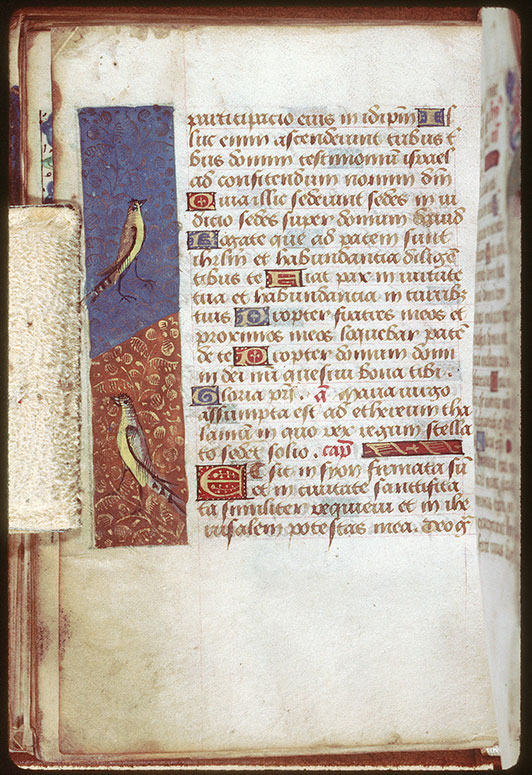 participacio eius in idip̄m Il
luc enim ascenderunt tribus t̄
bus domini testimoniū isr̄ael
ad confitendum nomini dñi
Quia illic sederunt sedes in iu
dicio sedes super domum david
Rogate que ad pacem sunt
ihrl̄m et habundancia diligen̄
tibus te Fiat pax in virtute
tua et habundancia in turrib;
tuis Propter fratres meos et
proximos meos loquebar pacē
de te Propter domum domi
ni dei mi quesivi bona tibi.
Gloria pr̄i. ā Maria virgo
assumpta est ad ethereum tha
lamum in quo rex regum stella
to sedet solio. cap̄
Et sic in syon firmata sū
et in civitate santifica
ta similiter requievi et in ihe
rusalem potestas mea. Deo g̃